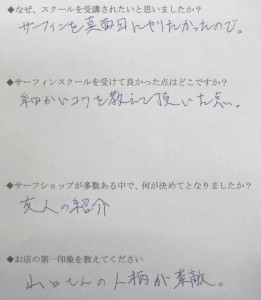 ◆なぜ、スクールを受講されたいと思いましたか？
サーフィンを真面目にやりたかったので。
◆サーフィンスクールを受けて良かった点はどこですか？
細かいコツを教えて頂いた点。
◆サーフショップが多数ある中で、何が決めてとなりましたか？
友人の紹介
◆お店の第一印象を教えてください
さんの人柄が素敵。